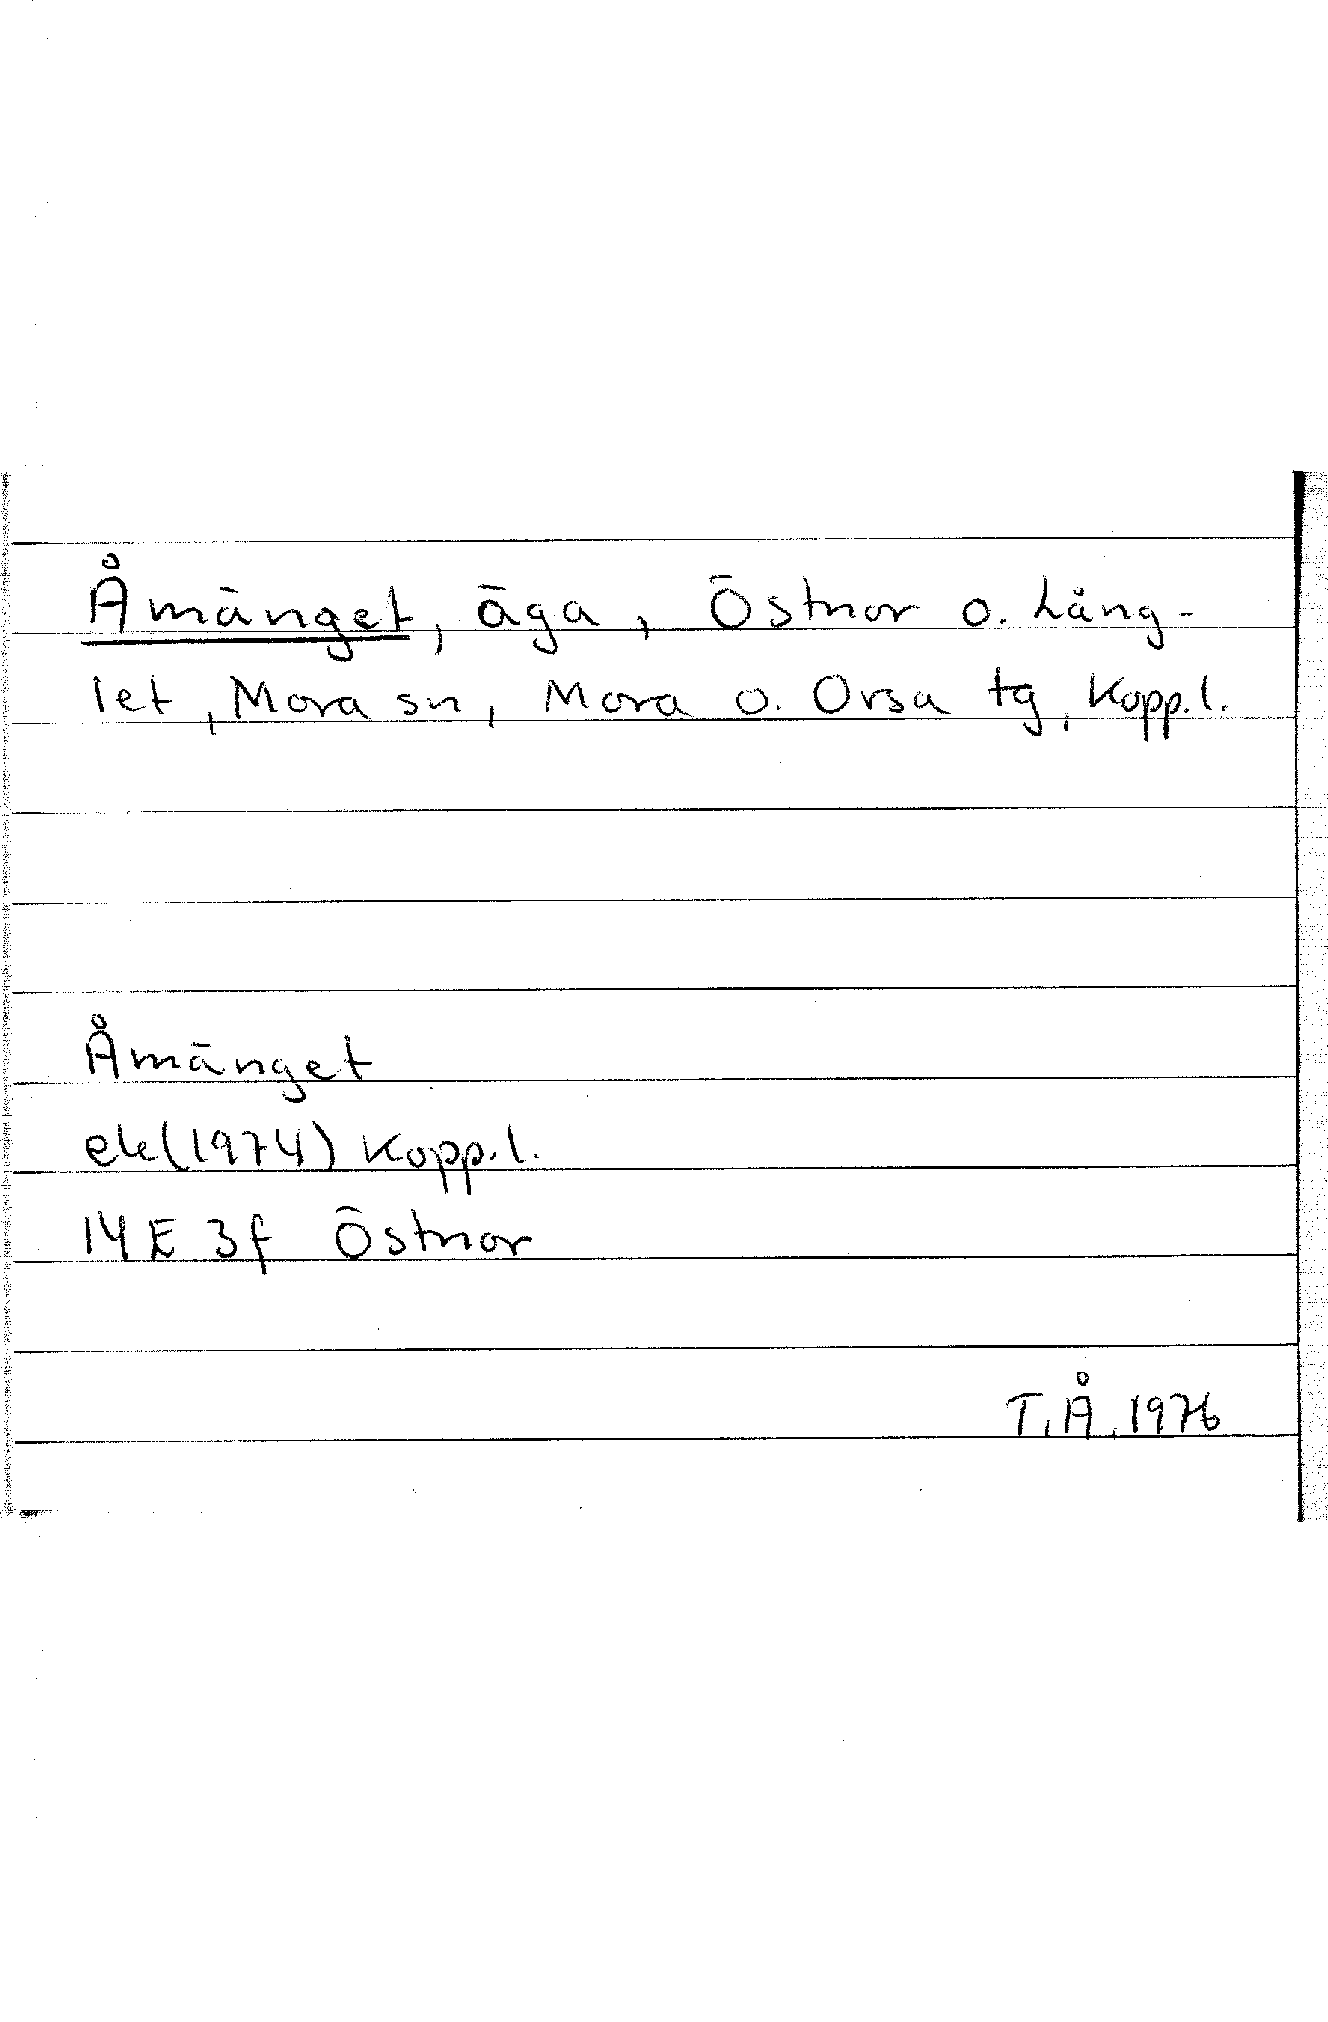 Åmänget, äga, Östnor o. Lång-
let, Mora sn, Mora o. Orsa tg, Kopp.l.
Åmänget
ek(1974) Kopp.l.
14E 3f Östnor
T.Å.1976